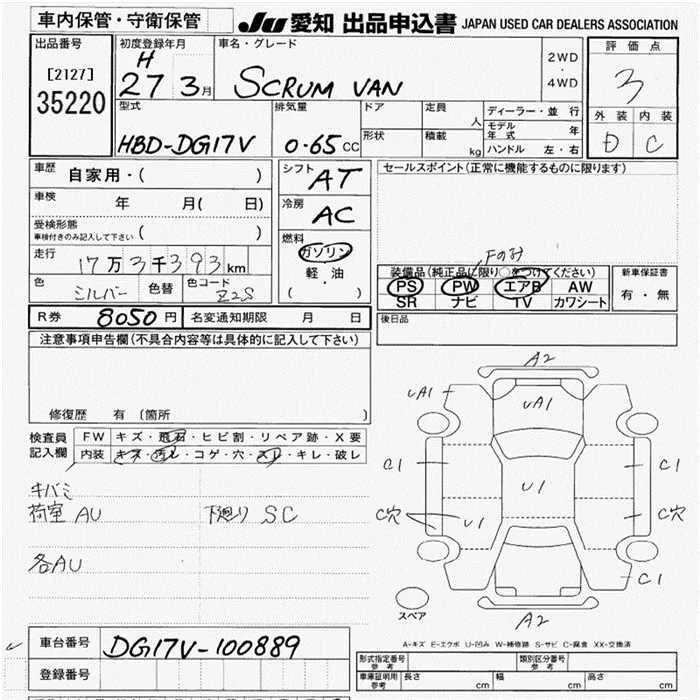 車内保管・守衛保管
JU 愛知 出品申込書 JAPAN USED CAR DEALERS ASSOCIATION
出品番号
[2127]
35220
初度登録年月
H
27 3月
車名・グレード
SCRUM VAN
2WD
・
4WD
評価点
3
外装 内装
D C
型式
HBD-DG17V
排気量
0.65 CC
ドア
形状
定員
人
積載
kg
ディーラー・並行
モデル年式 年
ハンドル 左・右
車歴 自家用・( )
車検 年 月( 日)
受検形態
車検付きのみ記入して下さい ( )
走行 17万3千393km
色 シルバー 色替 色コード Z2S
シフト AT
冷房 AC
燃料
ガソリン
軽・油
( )
セールスポイント(正常に機能するものに限ります)
Fのみ
装備品(純正品に限り○をつけてください)
PS PW エアB AW
SR ナビ TV カワシート
新車保証書
有・無
R券 8050円 名変通知期限 月 日
後日品
注意事項申告欄(不具合内容等は具体的に記入して下さい)
修復歴 有(箇所 )
検査員
記入欄
FW キズ・飛石・ヒビ割・リペア跡・X要
内装 キズ・汚レ・コゲ・穴・スレ・キレ・破レ
キバミ
荷室 AU 下廻り SC
各AU
A2
UA1 UA1
C1 C1
U1
C穴 U1 C穴
C1
スペア
A2
A-キズ E-エクボ U-凹み W-補修跡 S-サビ C-腐食 XX-交換済
車台番号 DG17V-100889
登録番号
形式指定番号
参考
類別区分番号
参考
車庫証明用
参考
長さ cm 幅 cm 高さ cm